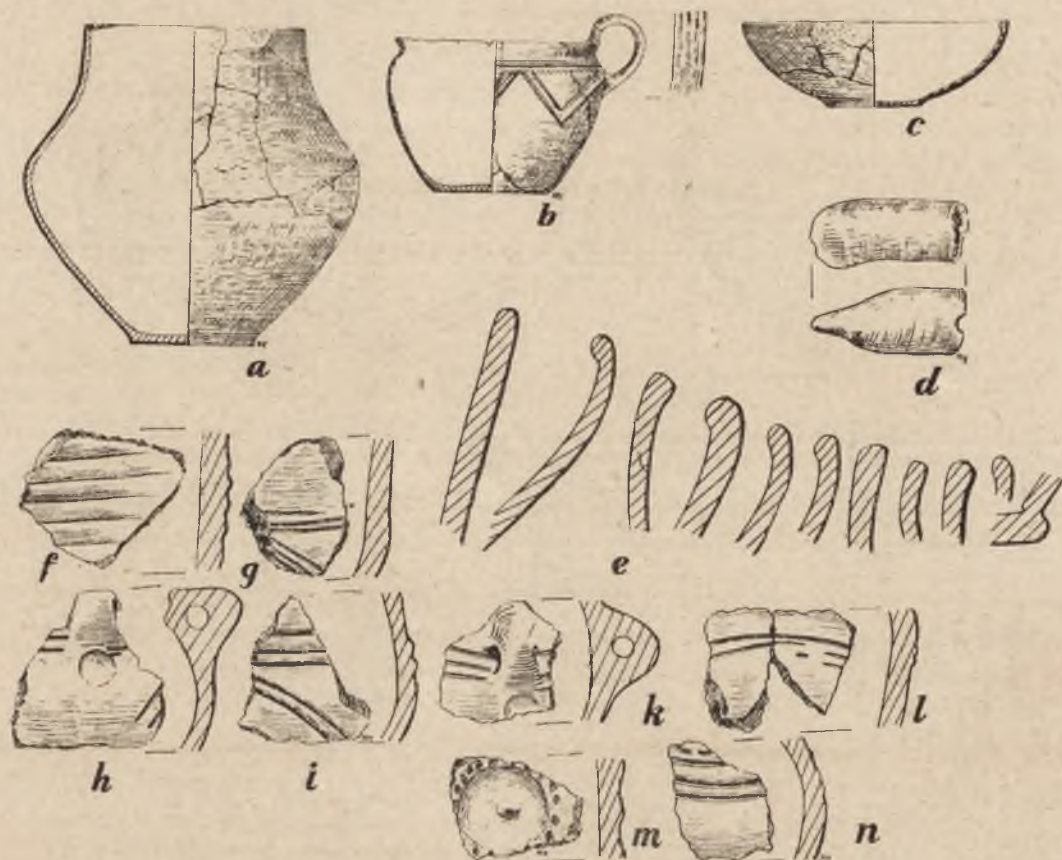 a
b
c
d
e
f
g
h
i
k
l
m
n